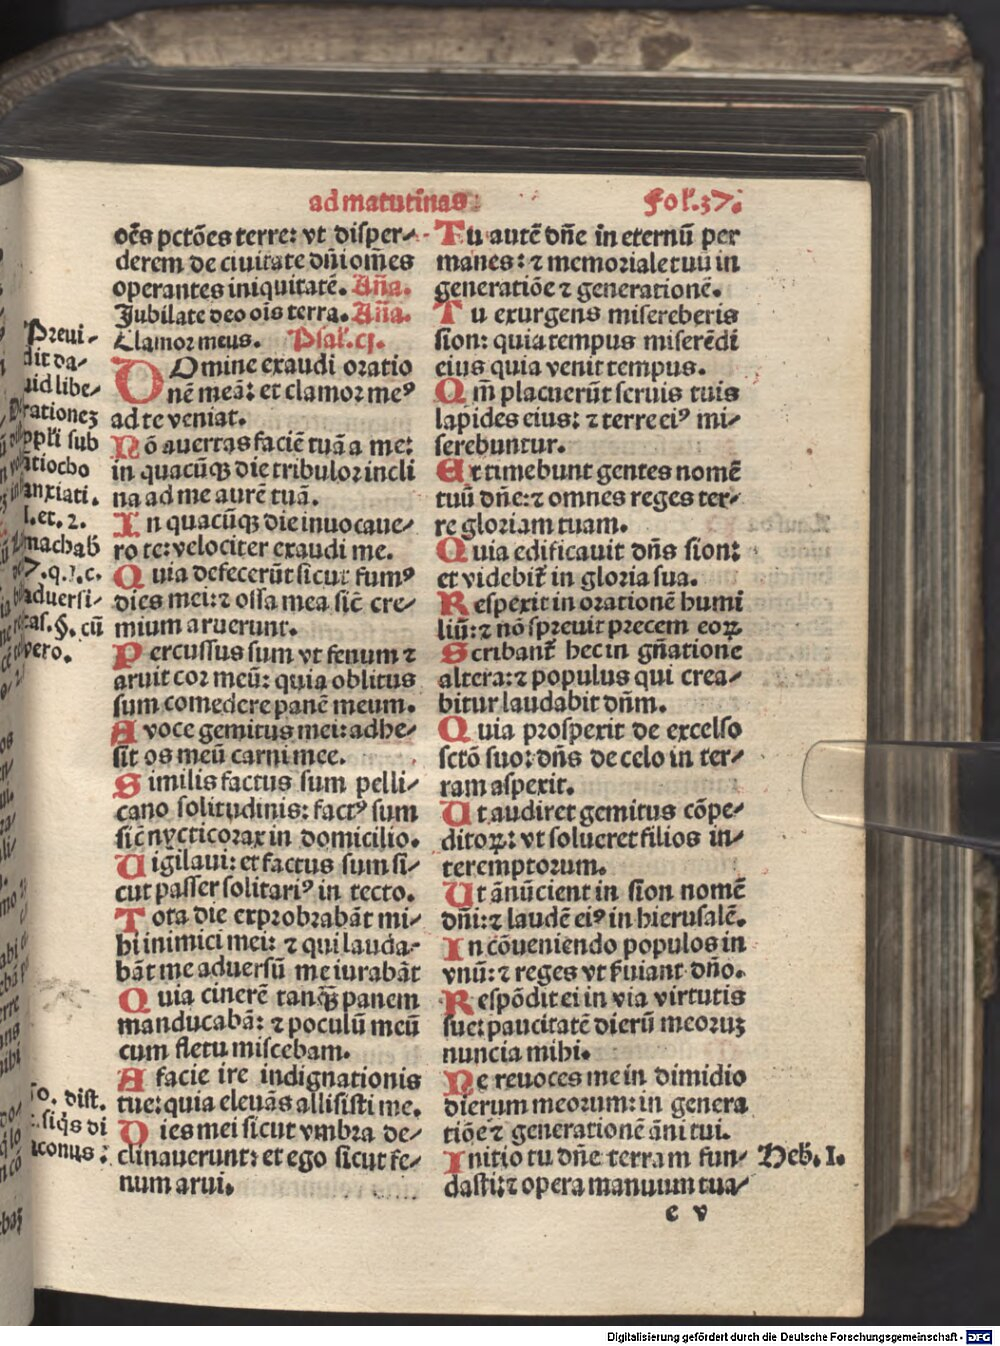 ad matutinas
Fol. 37.
oēs pctōes terre: vt disper-
derem de ciuitate dñi om̄es
operantes iniquitatē. Aña.
Jubilate deo ois terra. Aña.
Clamor meus. Psal. cj.
DOmine exaudi oratio
nē meā: et clamor meꝰ
ad te veniat.
Nō auertas faciē tuā a me:
in quacūqꝫ die tribulor incli
na ad me aurē tuā.
In quacūqꝫ die inuocaue-
ro te: velociter exaudi me.
Quia defecerūt sicut fumꝰ
dies mei: ⁊ ossa mea sic̄ cre-
mium aruerunt.
Percussus sum vt fenum ⁊
aruit cor meū: quia oblitus
sum comedere panē meum.
A voce gemitus mei: adhe-
sit os meū carni mee.
Similis factus sum pelli-
cano solitudinis: factꝰ sum
sic̄ nycticorax in domicilio.
Uigilaui: et factus sum si-
cut passer solitariꝰ in tecto.
Tota die exprobrabāt mi-
hi inimici mei: ⁊ qui lauda-
bāt me aduersū me iurabāt
Quia cinerē tanqꝫ panem
manducabā: ⁊ poculū meū
cum fletu miscebam.
A facie ire indignationis
tue: quia eleuās allisisti me.
Dies mei sicut vmbra de-
clinauerunt: et ego sicut fe-
num arui.
Tu autē dñe in eternū per
manes: ⁊ memoriale tuū in
generatiōe ⁊ generationē.
Tu exurgens misereberis
sion: quia tempus miserēdi
eius quia venit tempus.
Qm̄ placuerūt seruis tuis
lapides eius: ⁊ terre eiꝰ mi-
serebuntur.
Et timebunt gentes nomē
tuū dñe: ⁊ omnes reges ter-
re gloriam tuam.
Quia edificauit dñs sion:
et videbit̄ in gloria sua.
Respexit in orationē humi
liū: ⁊ nō spreuit precem eoꝝ
Scribant̄ hec in gñatione
altera: ⁊ populus qui crea-
bitur laudabit dñm.
Quia prospexit de excelso
sctō suo: dñs de celo in ter-
ram aspexit.
Ut audiret gemitus cōpe-
ditoꝝ: vt solueret filios in-
teremptorum.
Ut ānūcient in sion nomē
dñi: ⁊ laudē eiꝰ in hierusalē.
In cōueniendo populos in
vnū: ⁊ reges vt f̄uiant dño.
Respōdit ei in via virtutis
sue: paucitatē dierū meoruꝫ
nuncia mihi.
Ne reuoces me in dimidio
dierum meorum: in genera
tiōe ⁊ generationē āni tui.
Initio tu dñe terram fun-
dasti: ⁊ opera manuum tua-
e v
Preui-
dit da-
uid libe-
rationeꝫ
ppłi sub
ātiocho
anxiati.
I. et. 2.
machab
7. q. I. c.
aduersi-
tas. §. cū
vero.
dist.
siq̄s di
aconus:
Heb. I.
Digitalisierung gefördert durch die Deutsche Forschungsgemeinschaft - DFG